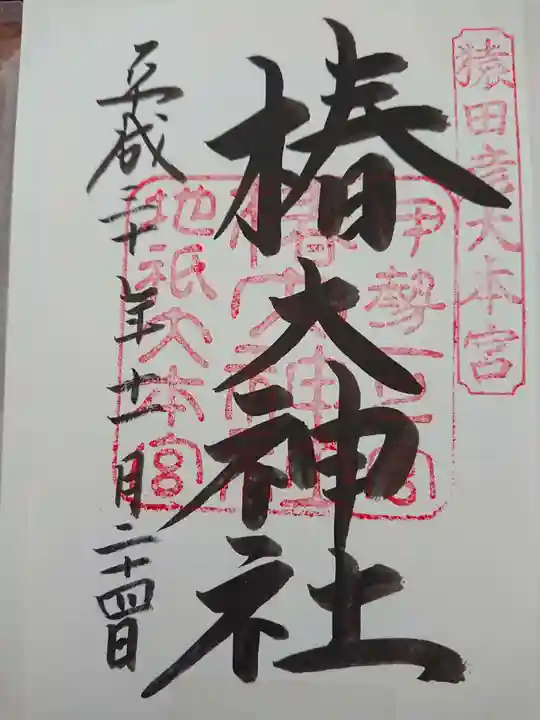 猿田彦大本宮
椿大神社
伊勢一之宮
椿大神社
地祇大本宮
平成三十年十一月二十四日